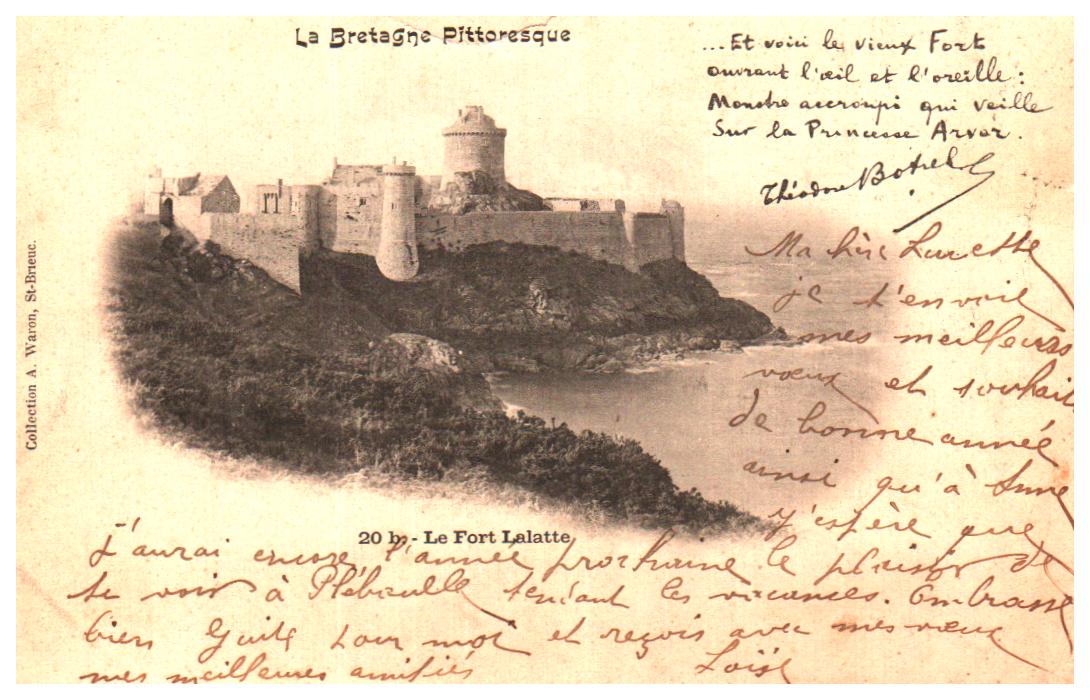 La Bretagne Pittoresque
...Et voici le vieux Fort
ouvrant l'œil et l'oreille :
Monstre accroupi qui veille
Sur la Princesse Arvor.
Théodore Botrel
Collection A. Waron, St-Brieuc.
20 b. - Le Fort Lalatte
Ma chère Lucette
je t'envoie
mes meilleurs
vœux et souhaits
de bonne année
ainsi qu'à
j'espère que
j'aurai encore l'année prochaine le plaisir de
te voir à Pléboulle les vacances. Embrasse
bien pour moi et reçois avec mes vœux
mes meilleures amitiés